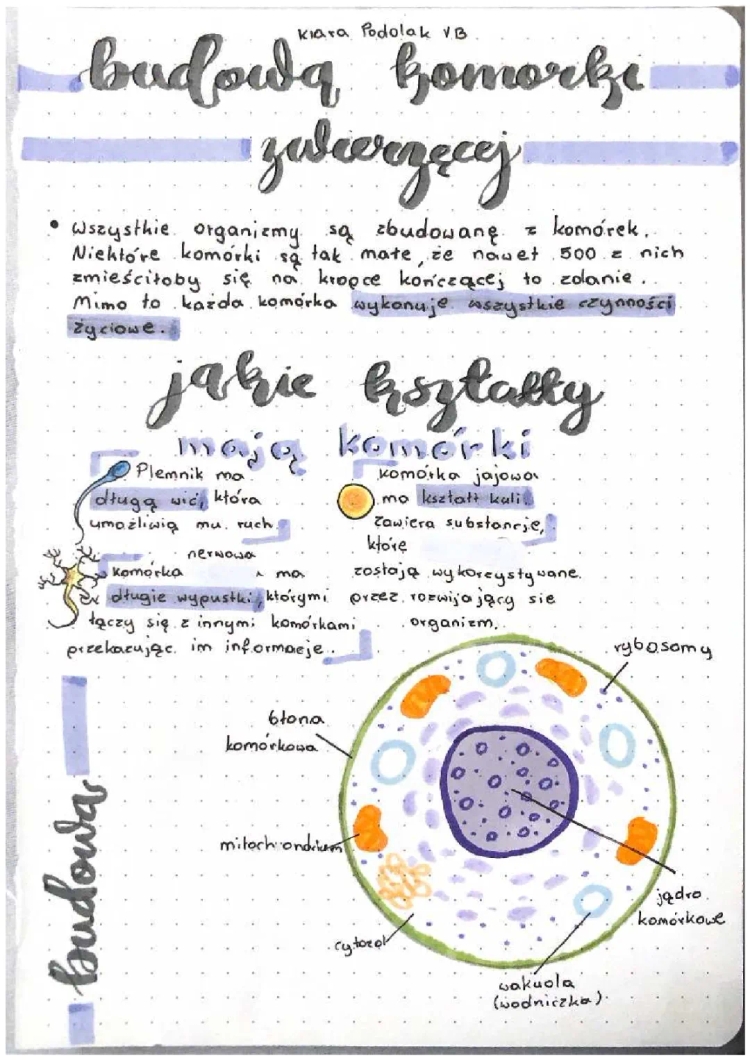 Klara Podolak VB
budową komorki
zwierzęcej
• Wszystkie organizmy są zbudowanę z komórek.
Niektóre komórki są tak małe, że nawet 500 z nich
zmieściłoby się na kropce kończącej to zdanie.
Mimo to każda komórka wykonuje wszystkie czynności
życiowe.
jakie kształty
mają komórki
Plemnik ma
długą wić, która
umożliwia mu ruch.
nerwowa
komórka ma
długie wypustki, którymi
łączy się z innymi komórkami
przekazując im informacje.
komórka jajowa
ma kształt kuli.
Zawiera substancje,
które
zostają wykorzystywane
przez rozwijający sie
organizm.
budowa
rybosomy
błona
komórkowa
mitochondrium
cytozol
jądro
komórkowe
wakuola
(wodniczka)